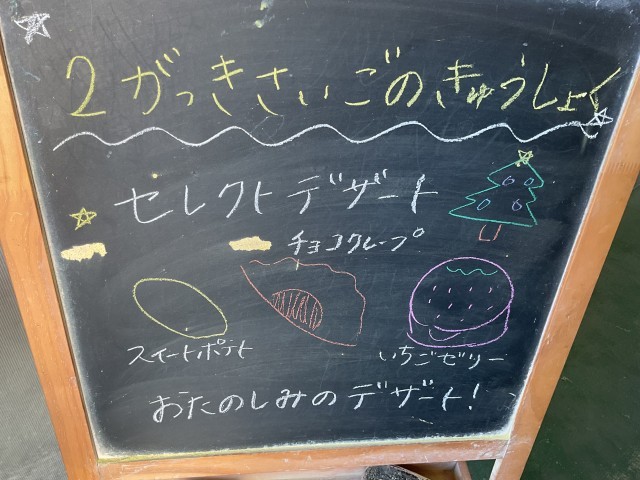 2がっきさいごのきゅうしょく
セレクトデザート
チョコクレープ
スイートポテト
いちごゼリー
おたのしみのデザート!